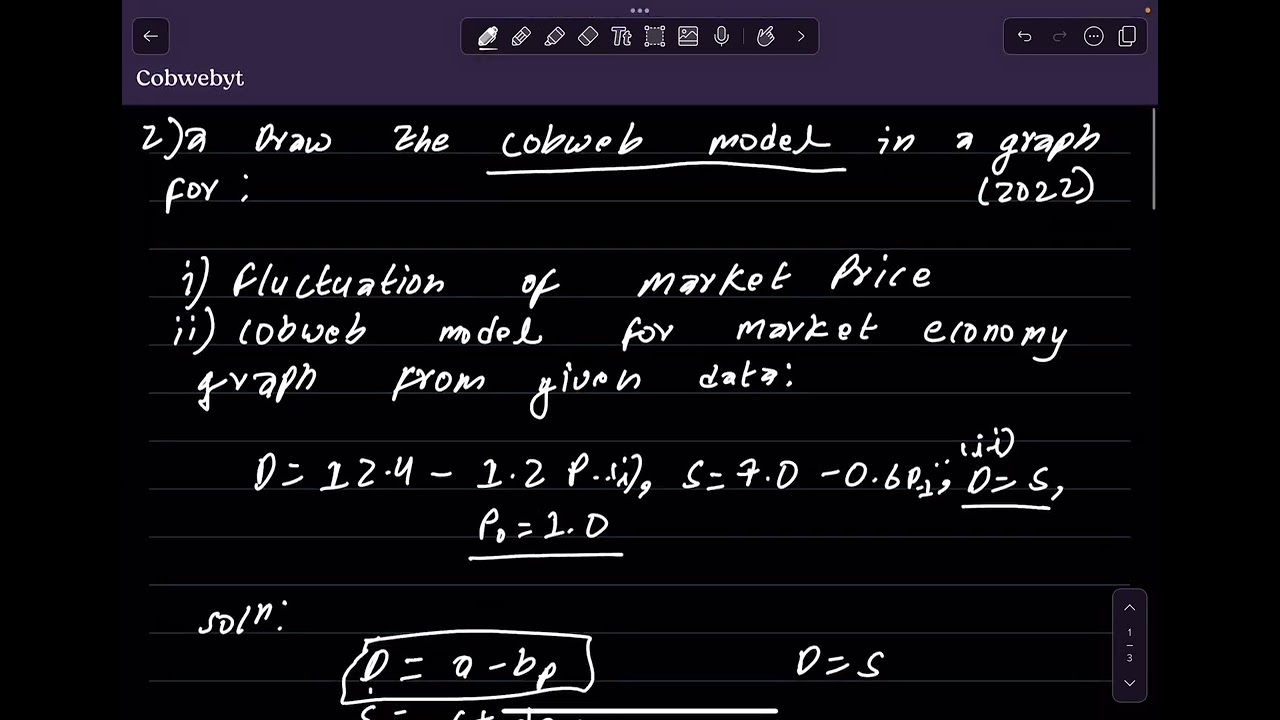 Cobwebyt
2)a Draw the cobweb model in a graph
for : (2022)
i) Fluctuation of market Price
ii) cobweb model for market economy
graph from given data:
D = 12.4 - 1.2 P..(i), S = 7.0 - 0.6P₋₁..; D = S, (iii)
P₀ = 1.0
soln:
D = a - bp D = S
S =
1
3